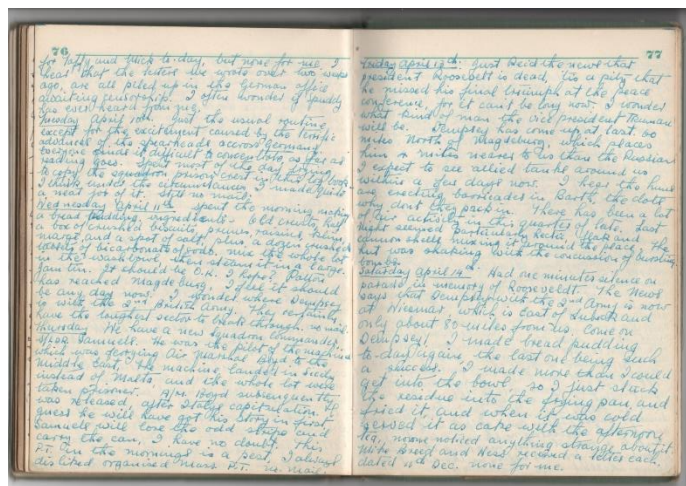 76
for Taffy and Mick to-day, but none for me. I
hear that the letters we wrote over two weeks
ago, are all piled up in the German office
awaiting censorship. I often wonder if
has ever heard from me.
Tuesday April 10th. Just the usual routine
except for the excitement caused by the terrific
advances of the spearheads accross Germany.
Everyone finds it difficult to concentrate as far as
reading goes. Spent most of my day trying
to copy the squadron prison crest in this log book.
I think under the circumstances I made quite
a neat job of it. Still no mail.
Wednesday April 11th. Spent the morning making
a bread pudding, ingredients:- old bread, half
a box of crushed biscuits, prunes, raisins, sugar
marge and a spot of salt, plus a dozen crushed
tablets of bicarbonate of soda. mix the whole lot
in the wash bowl, then steam it in a large
jam tin. It should be O.K. I hope? Patton
has reached Magdeburg. I feel it should
be any day now. I wonder where Dempsey
is with the 2nd British Army. They certainly
have the toughest sector to break through. no mail.
Thursday. We have a new Squadron Commander,
Samuels. He was the pilot of the machine
which was ferrying Air Marshal Boyd to the
Middle East, the machine landed in Sicily
instead of Malta and the whole lot were
taken prisoner. A/M. Boyd subsequently
was released after Italy capitulation. I
guess he will have got his story in first.
Samuels will lose the odd stripe and
carry the can, I have no doubt. This
P.T. in the mornings is a pest, I always
disliked organised mass P.T. no mail.
77
Friday April 13th. Just heard the news that
president Roosevelt is dead, tis a pity that
he missed his final triumph at the peace
conference, for it can't be long now. I wonder
what kind of man the vice president Truman
will be. Dempsey has come up at last, 60
miles North of Magdeburg, which places
him miles nearer to us than the Russians
I expect to see allied tanks around us
within a few days now. I hear the huns
are erecting barricades in Barth, the clots
why dont they pack in. There has been a lot
of air activity in this quarter of late, last
night seemed particularly hectic, flak and
cannon shells mixing it around the place. The
hut was shaking with the concussion of bursting
bombs.
Saturday April 14th. Had one minutes silence on
parade in memory of Rooseveldt. The News
says that Dempsey with the 2nd Army is now
at Wismar, which is east of Lubeck and
only about 80 miles from us, come on
Dempsey! I made bread pudding
to-day again, the last one being such
a success. I made more than I could
get into the bowl, so I just stuck
the residue into the frying pan, and
fried it and when it was cold
served it as cake with the afternoon
tea, noone noticed anything strange about it
Mike Breed and Ness received a letter each.
dated Dec. none for me.